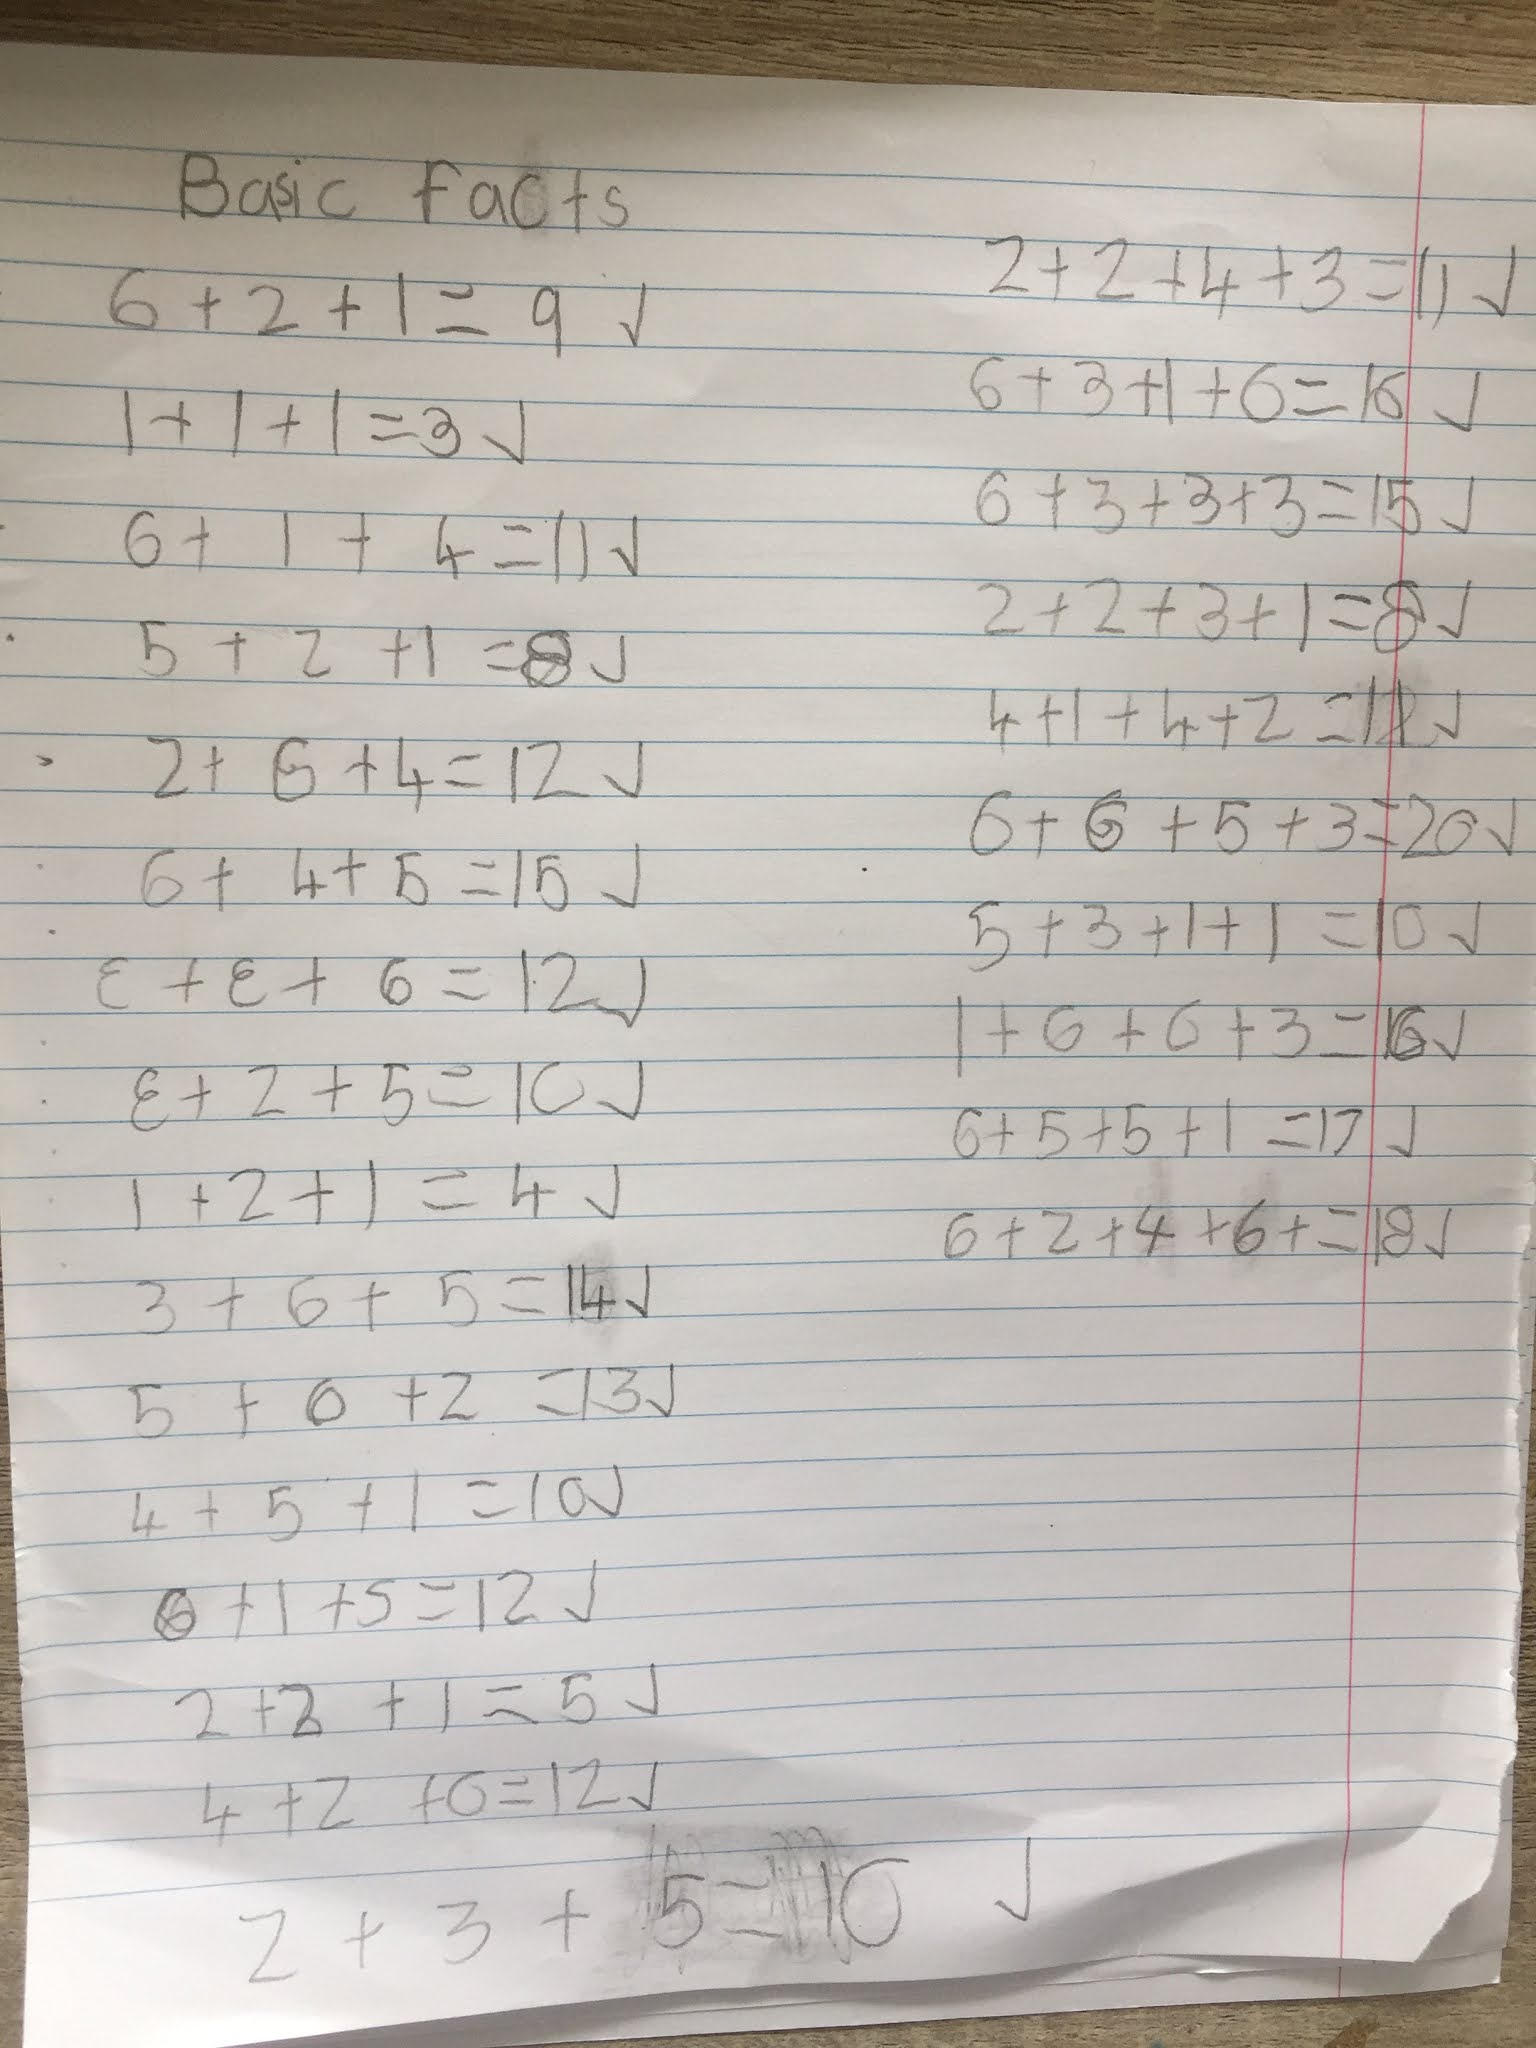 Basic facts
6 + 2 + 1 = 9 √
1 + 1 + 1 = 3 √
6 + 1 + 4 = 11 √
5 + 2 + 1 = 8 √
2 + 6 + 4 = 12 √
6 + 4 + 5 = 15 √
3 + 3 + 6 = 12 √
3 + 2 + 5 = 10 √
1 + 2 + 1 = 4 √
3 + 6 + 5 = 14 √
5 + 6 + 2 = 13 √
4 + 5 + 1 = 10 √
6 + 1 + 5 = 12 √
2 + 2 + 1 = 5 √
4 + 2 + 6 = 12 √
2 + 3 + 5 = 10 √
2 + 2 + 4 + 3 = 11 √
6 + 3 + 1 + 6 = 16 √
6 + 3 + 3 + 3 = 15 √
2 + 2 + 3 + 1 = 8 √
4 + 1 + 4 + 2 = 11 √
6 + 6 + 5 + 3 = 20 √
5 + 3 + 1 + 1 = 10 √
1 + 6 + 6 + 3 = 16 √
6 + 5 + 5 + 1 = 17 √
6 + 2 + 4 + 6 + = 18 √